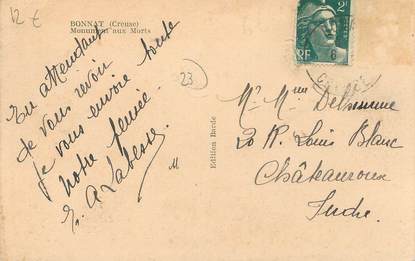 12 €
BONNAT (Creuse)
Monument aux Morts
En attendant
de vous revoir
je vous envoie toute
notre pensée.
A. Labesse
23
M
Edition Barde
2F
RF
Mr Mme Delhomme
20 R. Louis Blanc
Châteauroux
Indre.